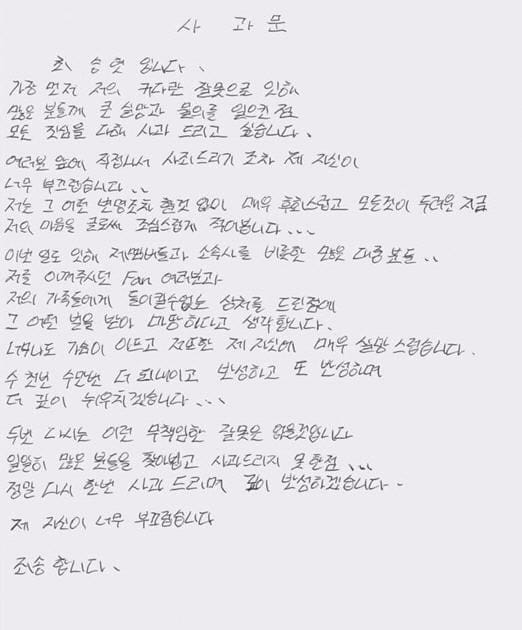 사 과 문
최 승 현 입니다.
가장 먼저 저의 커다란 잘못으로 인해
많은 분들께 큰 실망과 물의를 일으킨 점
모든 진심을 다해 사과 드리고 싶습니다.
여러분 앞에 직접나서 사죄드리기 조차 제 자신이
너무 부끄럽습니다..
저는 그 어떤 변명조차 할것 없이 매우 후회스럽고 모든것이 두려운 지금
저의 마음을 글로써 조심스럽게 적어봅니다...
이번 일로 인해 제 멤버들과 소속사를 비롯한 많은 대중 분들..
저를 아껴주시던 Fan 여러분과
저의 가족들에게 돌이킬수없는 상처를 드린점에
그 어떤 벌을 받아 마땅하다고 생각합니다.
너무나도 가슴이 아프고 저또한 제 자신에 매우 실망스럽습니다.
수 천번 수만번 더 되내이고 반성하고 또 반성하며
더 깊이 뉘우치겠습니다...
두번 다시는 이런 무책임한 잘못은 없을것입니다
일일히 많은 분들을 찾아뵙고 사과드리지 못한점...
정말 다시 한번 사과 드리며 깊이 반성하겠습니다.
제 자신이 너무 부끄럽습니다
죄송 합니다.